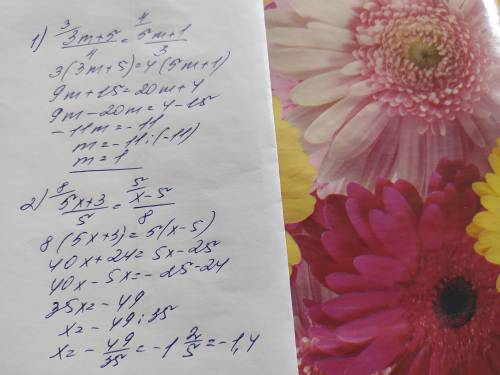 1) 3/ (3m+5)/4 = 4/ (5m+1)/3
3(3m+5)=4(5m+1)
9m+15=20m+4
9m-20m=4-15
-11m=-11
m=-11:(-11)
m=1
2) 8/ (5x+3)/5 = 5/ (x-5)/8
8(5x+3)=5(x-5)
40x+24=5x-25
40x-5x=-25-24
35x=-49
x=-49:35
x=-49/35=-1 2/5=-1,4